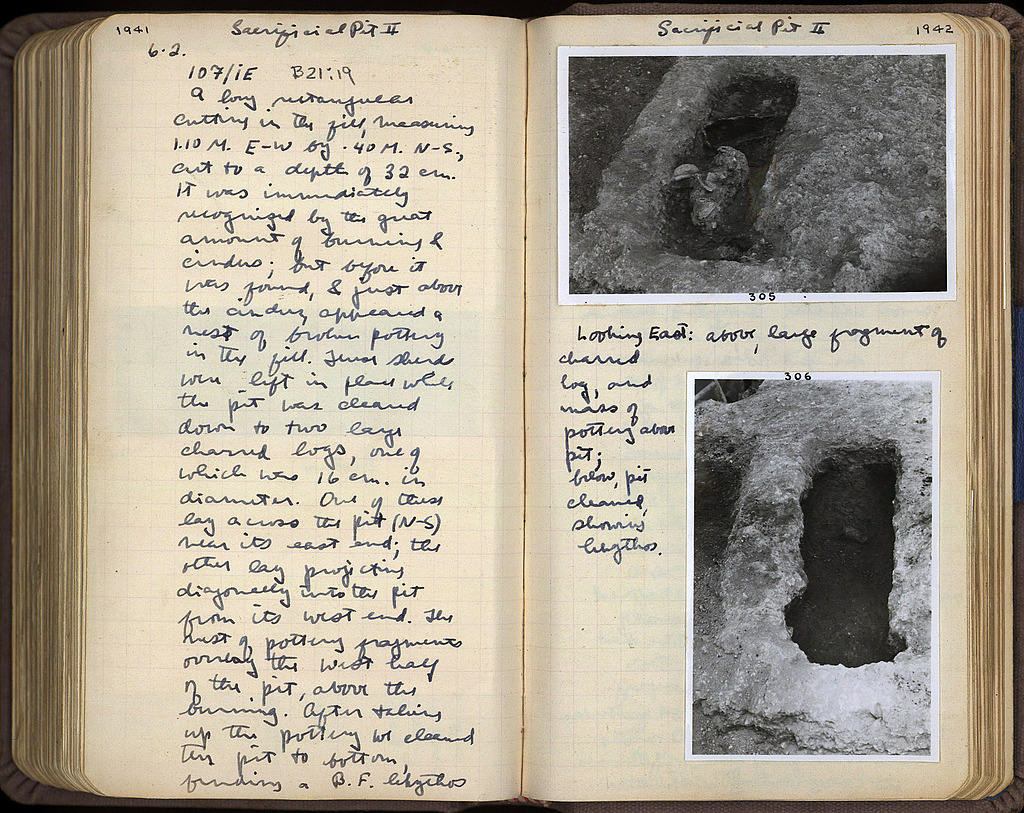 1941
Sacrificial Pit II
6.2.
107/ΙΕ B21:19
A long rectangular
cutting in the fill, measuring
1.10 M. E-W by .40 M. N-S.,
cut to a depth of 32 cm.
It was immediately
recognized by the great
amount of burning &
cinders; but before it
was found, & just above
the cinders appeared a
nest of broken pottery
in the fill. These sherds
were left in place while
the pit was cleaned
down to two large
charred logs, one of
which was 16 cm. in
diameter. One of these
lay across the pit (N-S)
near its east end; the
other lay projecting
diagonally into the pit
from its west end. The
nest of pottery fragments
overlay the west half
of the pit, above the
burning. After taking
up the pottery we cleaned
the pit to bottom,
finding a B.F. lekythos
Sacrificial Pit II
1942
305
Looking East: above, large fragment of
charred
log, and
mass of
pottery above
pit;
below, pit
cleaned,
showing
lekythos.
306